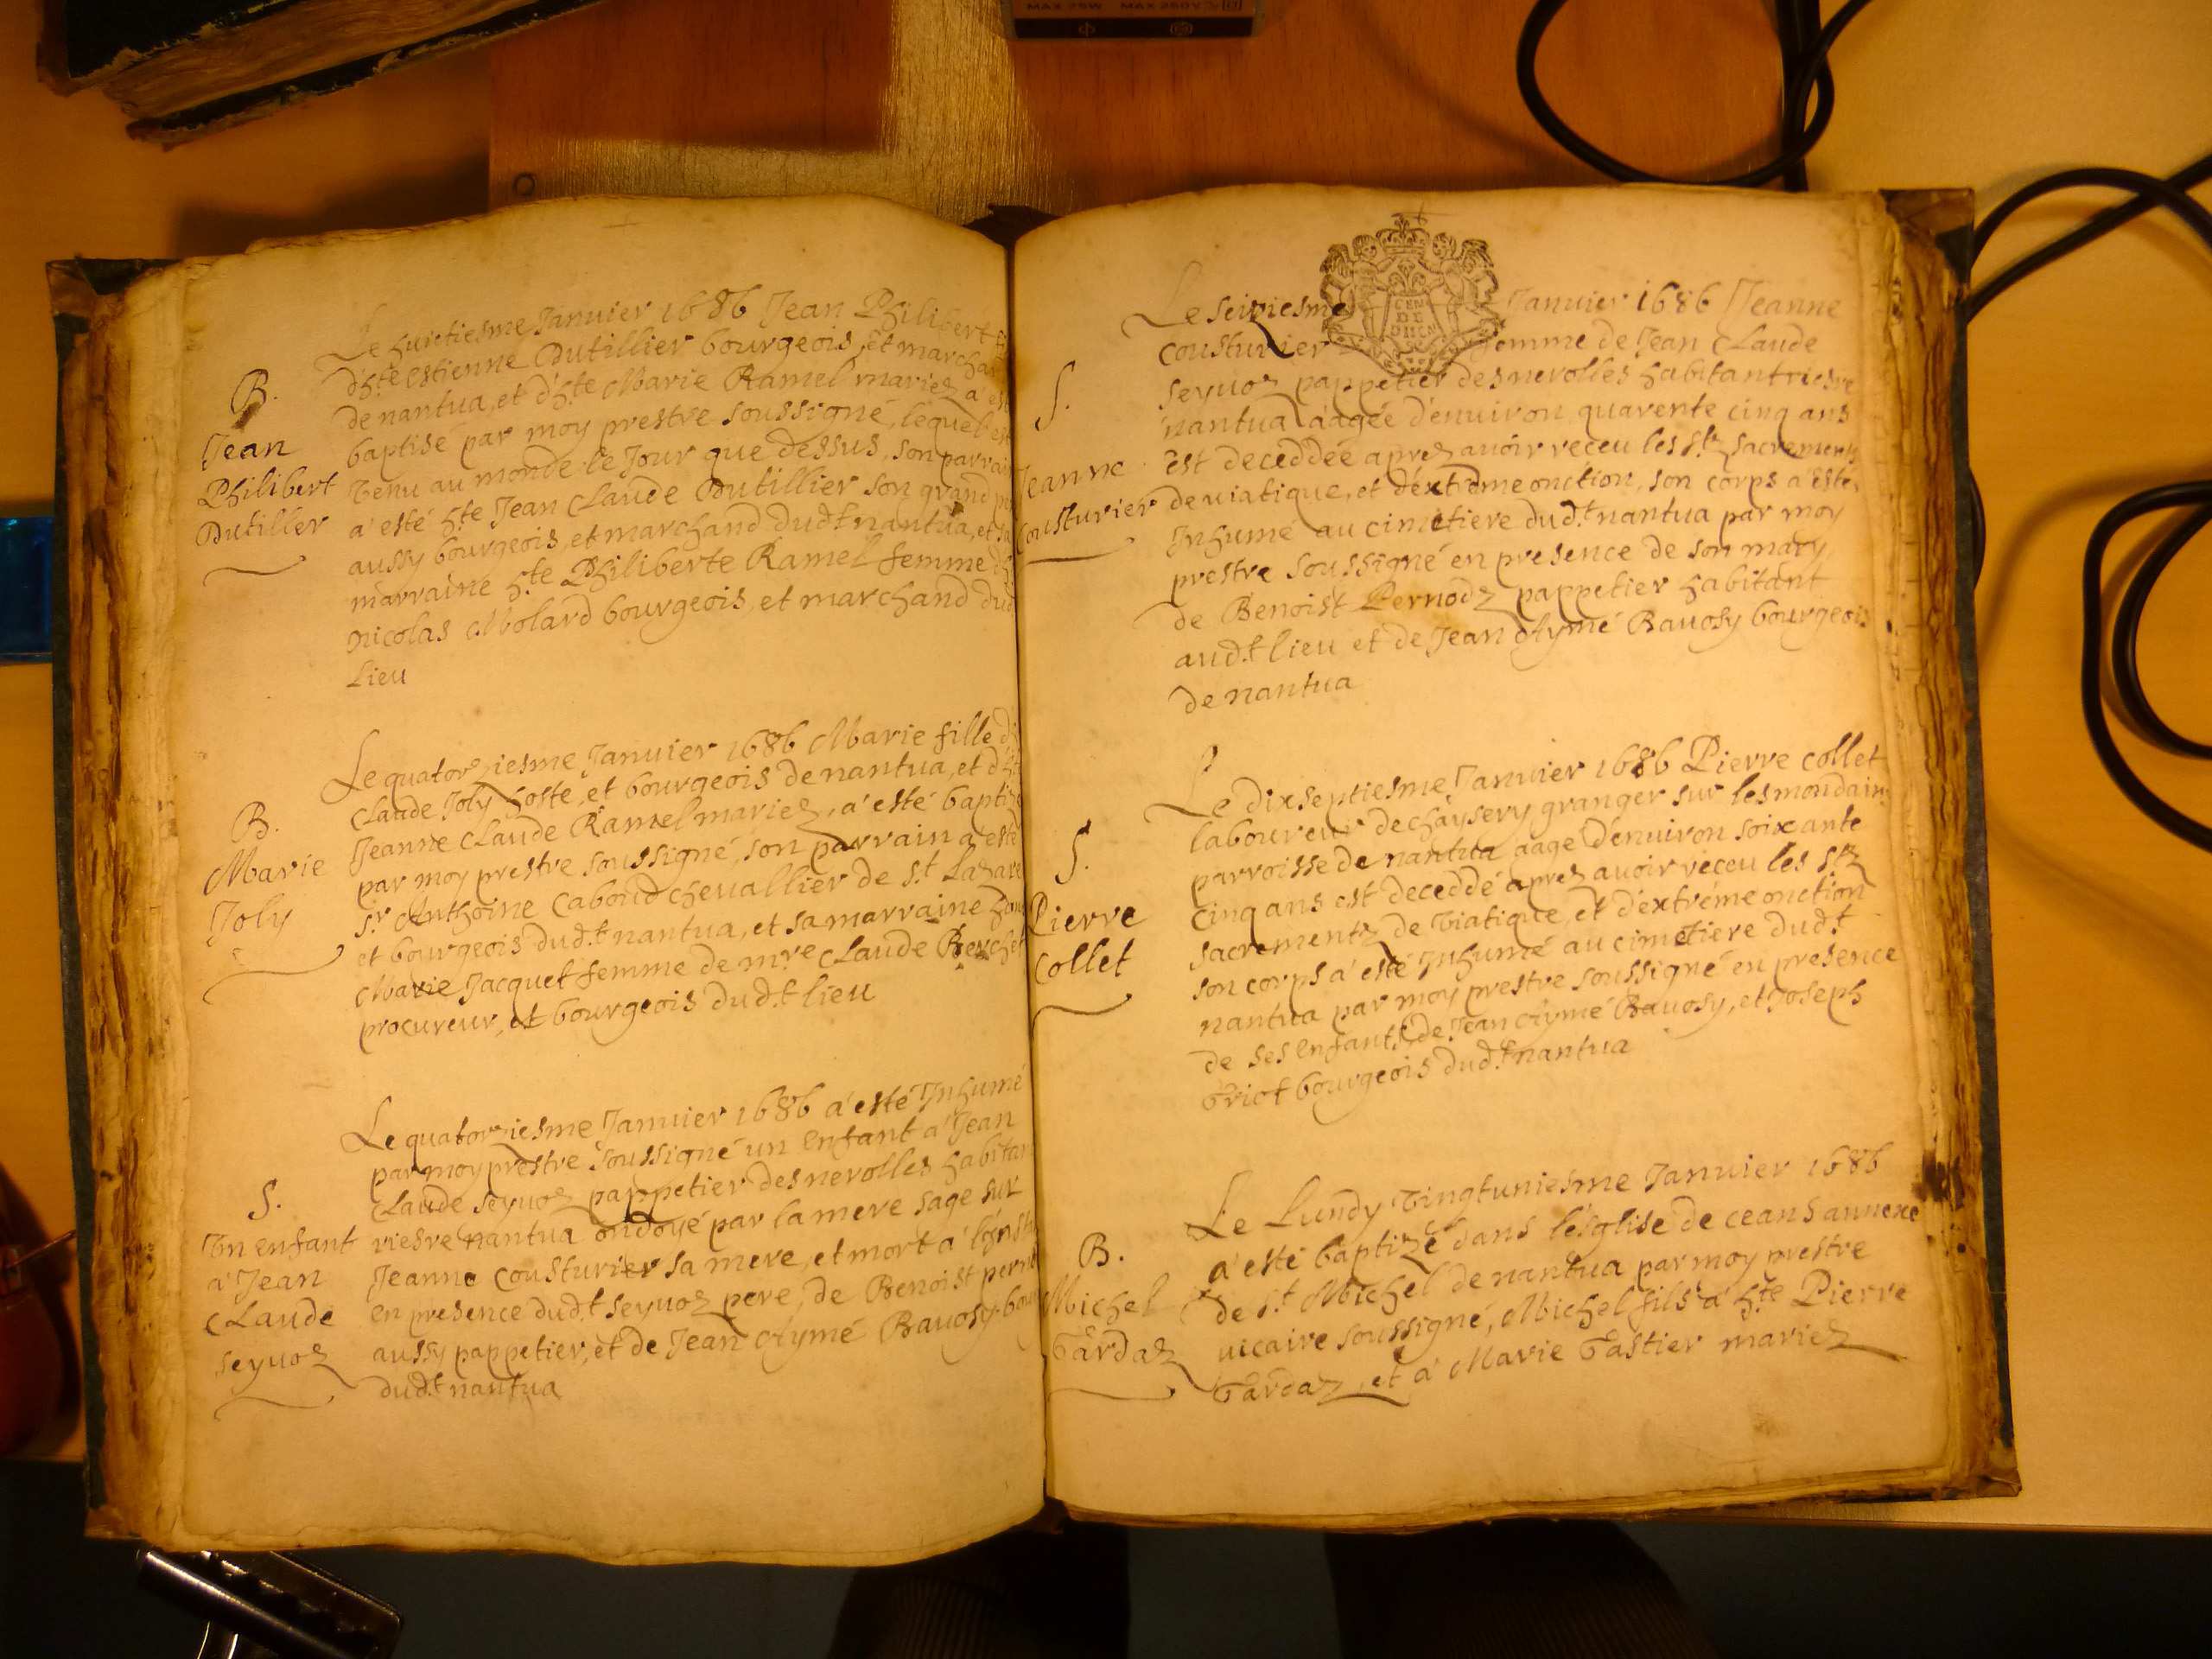 MAX 75W MAX 250V
Le huictiesme Janvier 1686 Jean Philibert
d'hte Estienne Dutillier bourgeois, et marchan
de nantua, et d'hte Marie Ramel mariez a'est
baptisé par moy prestre soussigné, lequel est
venu au monde le Jour que dessus, son parrain
a'esté hte Jean Claude Dutillier son grand
aussy bourgeois, et marchand dud.t nantua, et sa
marraine hte Philiberte Ramel femme
nicolas Molard bourgeois, et marchand dud
Lieu
B.
Jean
Philibert
Dutiller
Le quatorziesme Janvier 1686 Marie fille
Claude Joly hoste, et bourgeois de nantua, et d'h
Jeanne Claude Ramel mariez, a'esté bapti
par moy prestre soussigné, son parrain a'esté
s.r Anthoine Cabond chevallier de s.t Lazare
et bourgeois dud.t nantua, et sa marraine
Marie Jacquet femme de m.re Claude
procureur, et bourgeois dud.t lieu
B.
Marie
Joly
Le quatorziesme Janvier 1686 a'esté Inhumé
par moy prestre soussigné un enfant a' Jean
Claude seyvoz pappetier des nerolles habitan
riesre nantua ondoyé par la mere sage sur
Jeanne Cousturier sa mere, et mort a' l'inst
en presence dud.t seyvoz pere, de Benoist pern
aussy pappetier, et de Jean Aymé Ravosy bou
dud.t nantua
S.
Vn enfant
a' Jean
Claude
seyvoz
Le seiziesme Janvier 1686 Jeanne
GEN
DE
DIION
cousturier femme de Jean Claude
seyvoz pappetier des nerolles habitant riesre
nantua aagée d'environ quarente cinq ans
est deceddée aprez avoir receu les s.tz sacrements
de viatique, et d'extreme onction, son corps a'esté
Inhumé au cimetiere dud.t nantua par moy
prestre soussigné en presence de son mary
de Benoist Pernodz pappetier habitant
aud.t lieu et de Jean Aymé Ravosy bourgeois
de nantua
S.
Jeanne
Cousturier
Le dixseptiesme Janvier 1686 Pierre Collet
laboureur de chaysery granger sur les mondains
parroisse de nantua aage d'environ soixante
cinq ans est deceddé aprez avoir receu les s.tz
sacrementz de viatique, et d'extréme onction
son corps a'esté Inhumé au cimetiere dud.t
nantua par moy prestre soussigné en presence
de ses enfants, de Jean Aymé Ravosy, et Joseph
bourgeois dud.t nantua
S.
Pierre
Collet
Le Lundy vingtuniesme Janvier 1686
a'esté baptizé dans l'esglise de ceans annexe
de s.t Michel de nantua par moy prestre
vicaire soussigné, Michel fils a' hte Pierre
Tardaz, et a' Marie Tastier mariez
B.
Michel
Tardaz